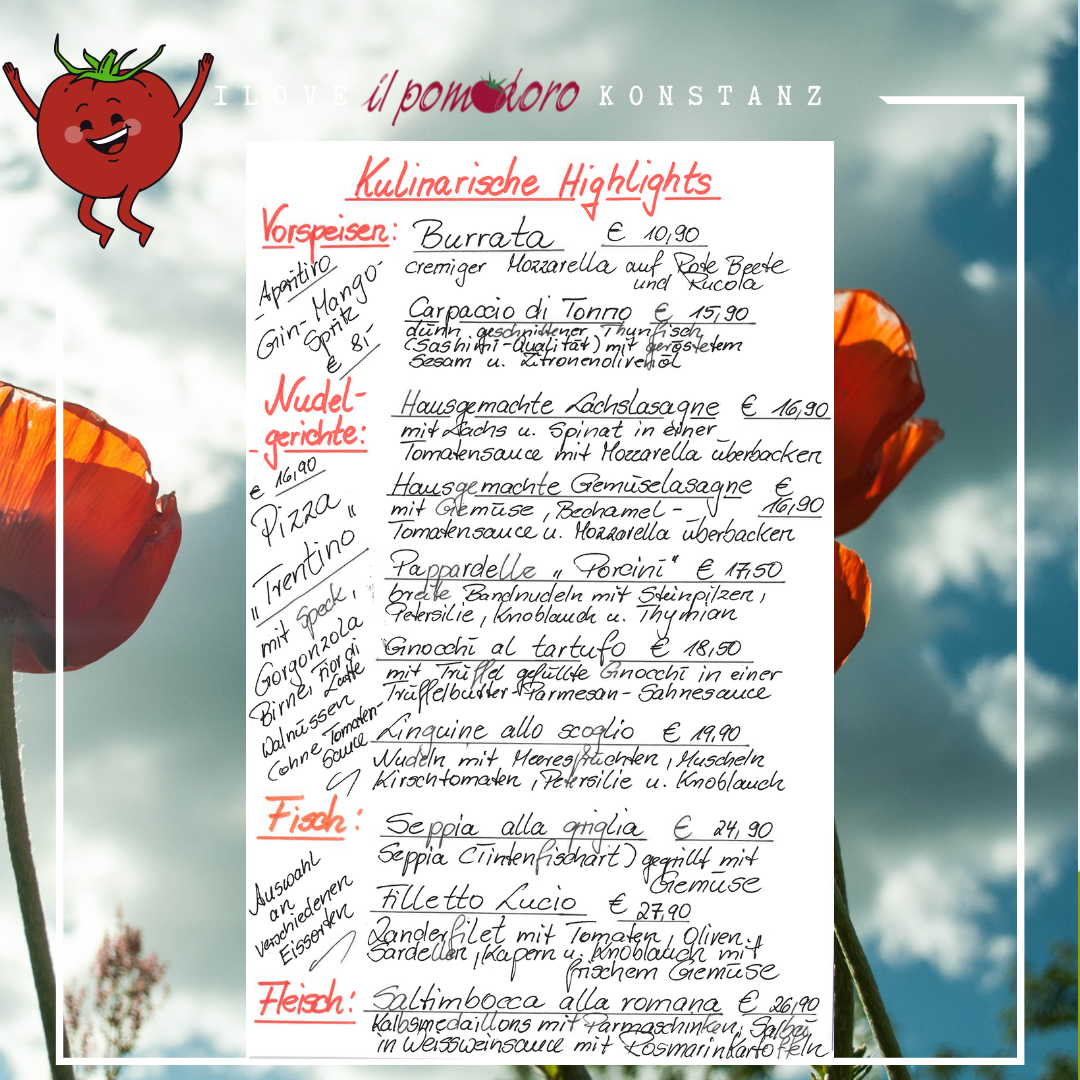 I LOVE il pomodoro KONSTANZ
Kulinarische Highlights
Vorspeisen:
Burrata € 10,90
cremiger Mozzarella auf Rote Beete
und Rucola
Carpaccio di Tonno € 15,90
dünn geschnittener Thunfisch
(Sashimi-Qualität) mit geröstetem
Sesam u. Zitronenolivenöl
Aperitivo
Gin-Mango-
Spritz
€ 8,-
Nudel-
gerichte:
Hausgemachte Lachslasagne € 16,90
mit Lachs u. Spinat in einer
Tomatensauce mit Mozzarella überbacken
Hausgemachte Gemüselasagne €
16,90
mit Gemüse, Bechamel-
Tomatensauce u. Mozzarella überbacken
Pappardelle „Porcini" € 17,50
breite Bandnudeln mit Steinpilzen,
Petersilie, Knoblauch u. Thymian
Gnocchi al tartufo € 18,50
mit Trüffel gefüllte Gnocchi in einer
Trüffelbutter-Parmesan-Sahnesauce
Linguine allo scoglio € 19.90
Nudeln mit Meeresfrüchten, Muscheln
Kirschtomaten, Petersilie u. Knoblauch
€ 16,90
Pizza
„Trentino"
mit Speck,
Gorgonzola
Birne, Fior di
Latte
Walnüssen
(ohne Tomaten-
Sauce)
Fisch:
Seppia alla griglia € 24,90
Seppia (Tintenfischart) gegrillt mit
Gemüse
Filletto Lucio € 27,90
Zanderfilet mit Tomaten, Oliven,
Sardellen, Kapern u. Knoblauch mit
frischem Gemüse
Auswahl
an
verschiedenen
Eissorten
Fleisch:
Saltimbocca alla romana € 26,90
Kalbsmedaillons mit Parmaschinken, Salbei
in Weissweinsauce mit Rosmarinkartoffeln